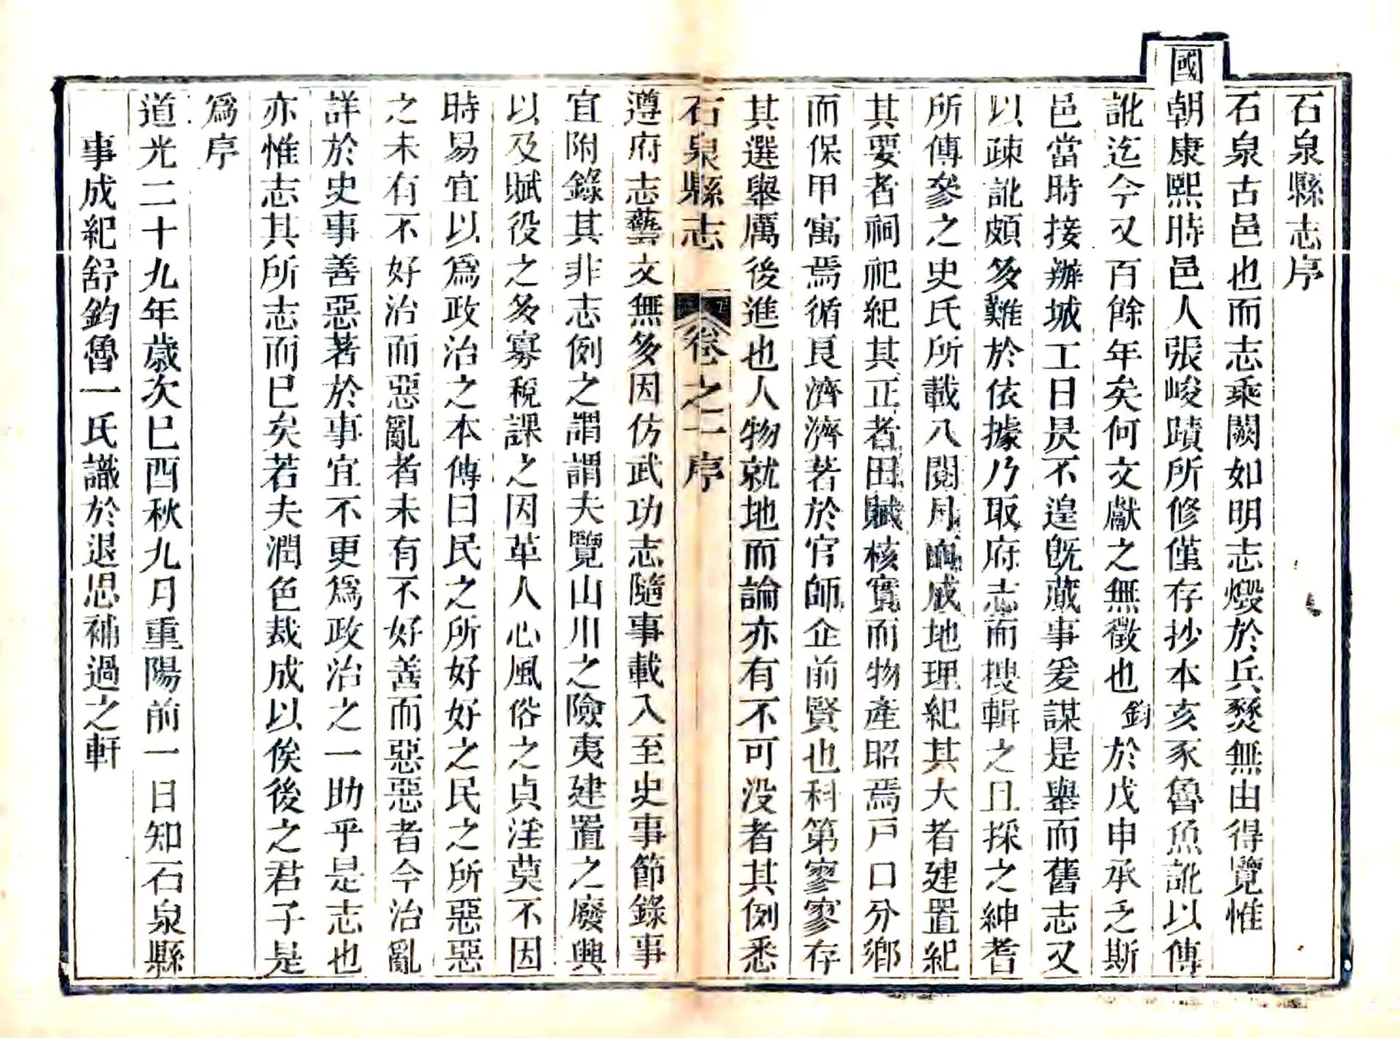 石泉縣志序
石泉古邑也而志乘闕如明志燬於兵燹無由得覽惟
國朝康熙時邑人張峻蹟所修僅存抄本亥豕魯魚訛以傳
訛迄今又百餘年矣何文獻之無徵也鈞於戊申承乏斯
邑當時接辦城工日昃不遑旣蕆事爰謀是舉而舊志又
以疎訛頗多難於依據乃取府志而搜輯之且採之紳耆
所傳參之史氏所載八閱月而成地理紀其大者建置紀
其要者祠祀紀其正者田賦核實而物產昭焉戸口分鄉
而保甲寓焉循良濟濟著於官師企前賢也科第寥寥存
其選舉厲後進也人物就地而論亦有不可没者其例悉
石泉縣志 卷之一序
遵府志藝文無多因仿武功志隨事載入至史事節錄事
宜附錄其非志例之謂謂夫覽山川之險夷建置之廢興
以及賦役之多寡稅課之因革人心風俗之貞淫莫不因
時易宜以爲政治之本傳曰民之所好好之民之所惡惡
之未有不好治而惡亂者未有不好善而惡惡者今治亂
詳於史事善惡著於事宜不更爲政治之一助乎是志也
亦惟志其所志而已矣若夫潤色裁成以俟後之君子是
爲序
道光二十九年歲次己酉秋九月重陽前一日知石泉縣
事成紀舒鈞魯一氏識於退思補過之軒